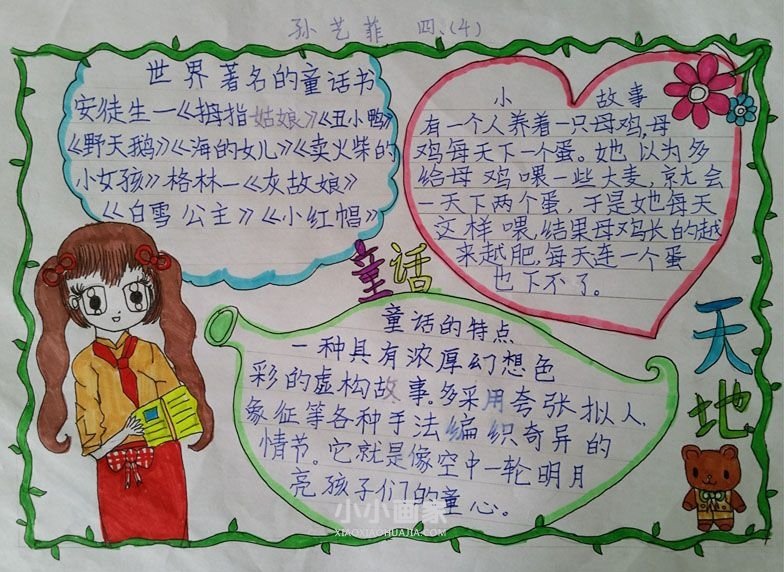 孙艺菲 四、(4)
世界著名的童话书
安徒生—《拇指姑娘》《丑小鸭》
《野天鹅》《海的女儿》《卖火柴的
小女孩》格林—《灰故娘》
《白雪公主》《小红帽》
小 故事
有一个人养着一只母鸡,母
鸡每天下一个蛋。她以为多
给母鸡喂一些大麦,就会
一天下两个蛋,于是她每天
这样喂,结果母鸡长的越
来越肥,每天连一个蛋
也下不了。
童话
天地
童话的特点
一种具有浓厚幻想色
彩的虚构故事。多采用夸张拟人,
象征等各种手法编织奇异的
情节。它就是像空中一轮明月
亮孩子们的童心。
小小画家
XIAOXIAOHUAJIA.COM